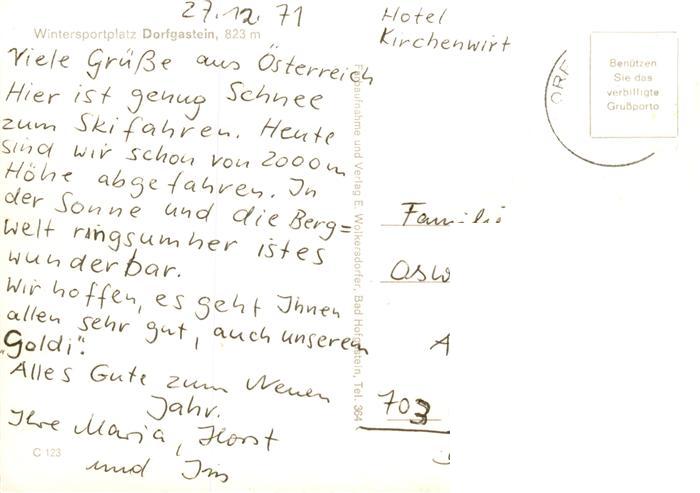 27.12.71
Hotel
Kirchenwirt
Wintersportplatz Dorfgastein, 823 m
Viele Grüße aus Österreich
Hier ist genug Schnee
zum Skifahren. Heute
sind wir schon von 2000m
Höhe abgefahren. In
der Sonne und die Berg=
welt ringsumher ist es
wunderbar.
Wir hoffen, es geht Ihnen
allen sehr gut, auch unserem
„Goldi".
Alles Gute zum Neuen
Jahr.
Ihre Maria, Horst
und
C 123
Farbaufnahme und Verlag E. Wolkersdorfer, Bad Hofgastein, Tel. 364
Benützen
Sie das
verbilligte
Grußporto
ORF
Familie
Osw
A
703